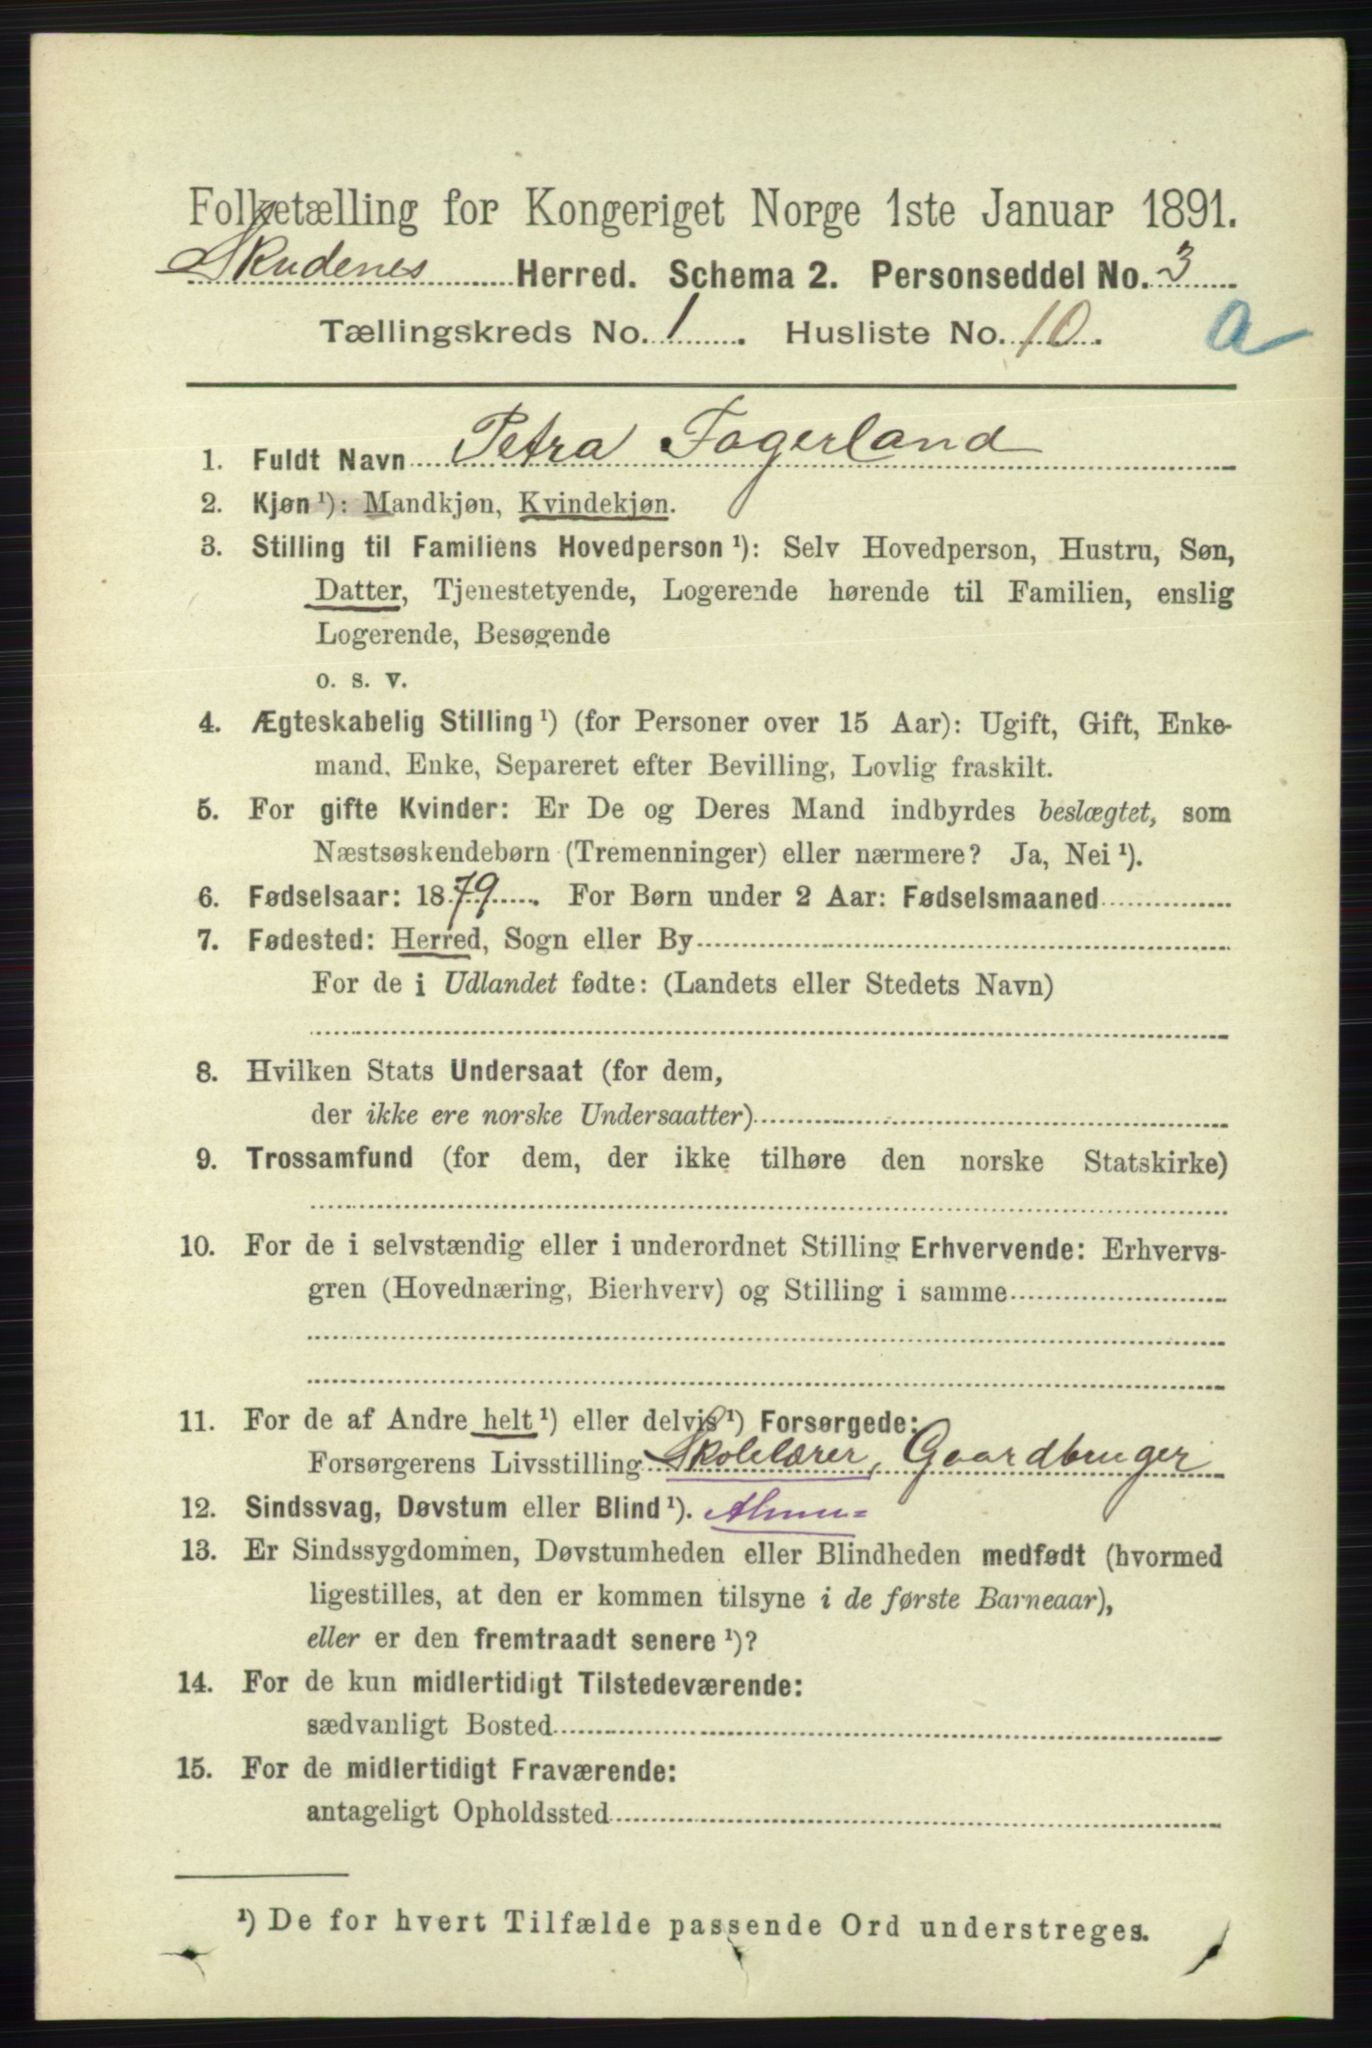 Folketælling for Kongeriget Norge 1ste Januar 1891.
Skudenes Herred. Schema 2. Personseddel No. 3
Tællingskreds No. 1. Husliste No. 10. a
1. Fuldt Navn Petra Fagerland
2. Kjøn¹): Mandkjøn, Kvindekjøn.
3. Stilling til Familiens Hovedperson¹): Selv Hovedperson, Hustru, Søn,
Datter, Tjenestetyende, Logerende hørende til Familien, enslig
Logerende, Besøgende
o. s. v.
4. Ægteskabelig Stilling¹) (for Personer over 15 Aar): Ugift, Gift, Enke-
mand, Enke, Separeret efter Bevilling, Lovlig fraskilt.
5. For gifte Kvinder: Er De og Deres Mand indbyrdes beslægtet, som
Næstsøskendebørn (Tremenninger) eller nærmere? Ja, Nei¹).
6. Fødselsaar: 1879. For Børn under 2 Aar: Fødselsmaaned
7. Fødested: Herred, Sogn eller By
For de i Udlandet fødte: (Landets eller Stedets Navn)
8. Hvilken Stats Undersaat (for dem,
der ikke ere norske Undersaatter)
9. Trossamfund (for dem, der ikke tilhøre den norske Statskirke)
10. For de i selvstændig eller i underordnet Stilling Erhvervende: Erhvervs-
gren (Hovednæring, Bierhverv) og Stilling i samme
11. For de af Andre helt¹) eller delvis¹) Forsørgede:
Forsørgerens Livsstilling Skolelærer, Gaardbruger
12. Sindssvag, Døvstum eller Blind¹). Almu=
13. Er Sindssygdommen, Døvstumheden eller Blindheden medfødt (hvormed
ligestilles, at den er kommen tilsyne i de første Barneaar),
eller er den fremtraadt senere¹)?
14. For de kun midlertidigt Tilstedeværende:
sædvanligt Bosted
15. For de midlertidigt Fraværende:
antageligt Opholdssted
¹) De for hvert Tilfælde passende Ord understreges.